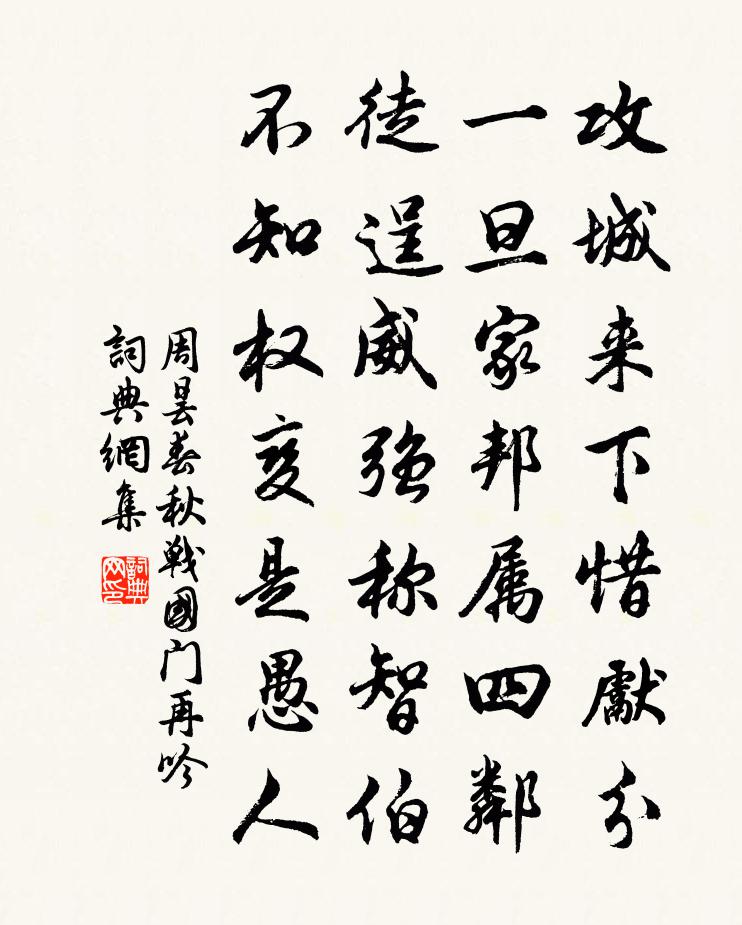 攻城来下惜献分
一旦家邦属四鄰
徒逞威强称智伯
不知权变是愚人
周昙春秋戰國门再吟
詞典網集
詞典网印